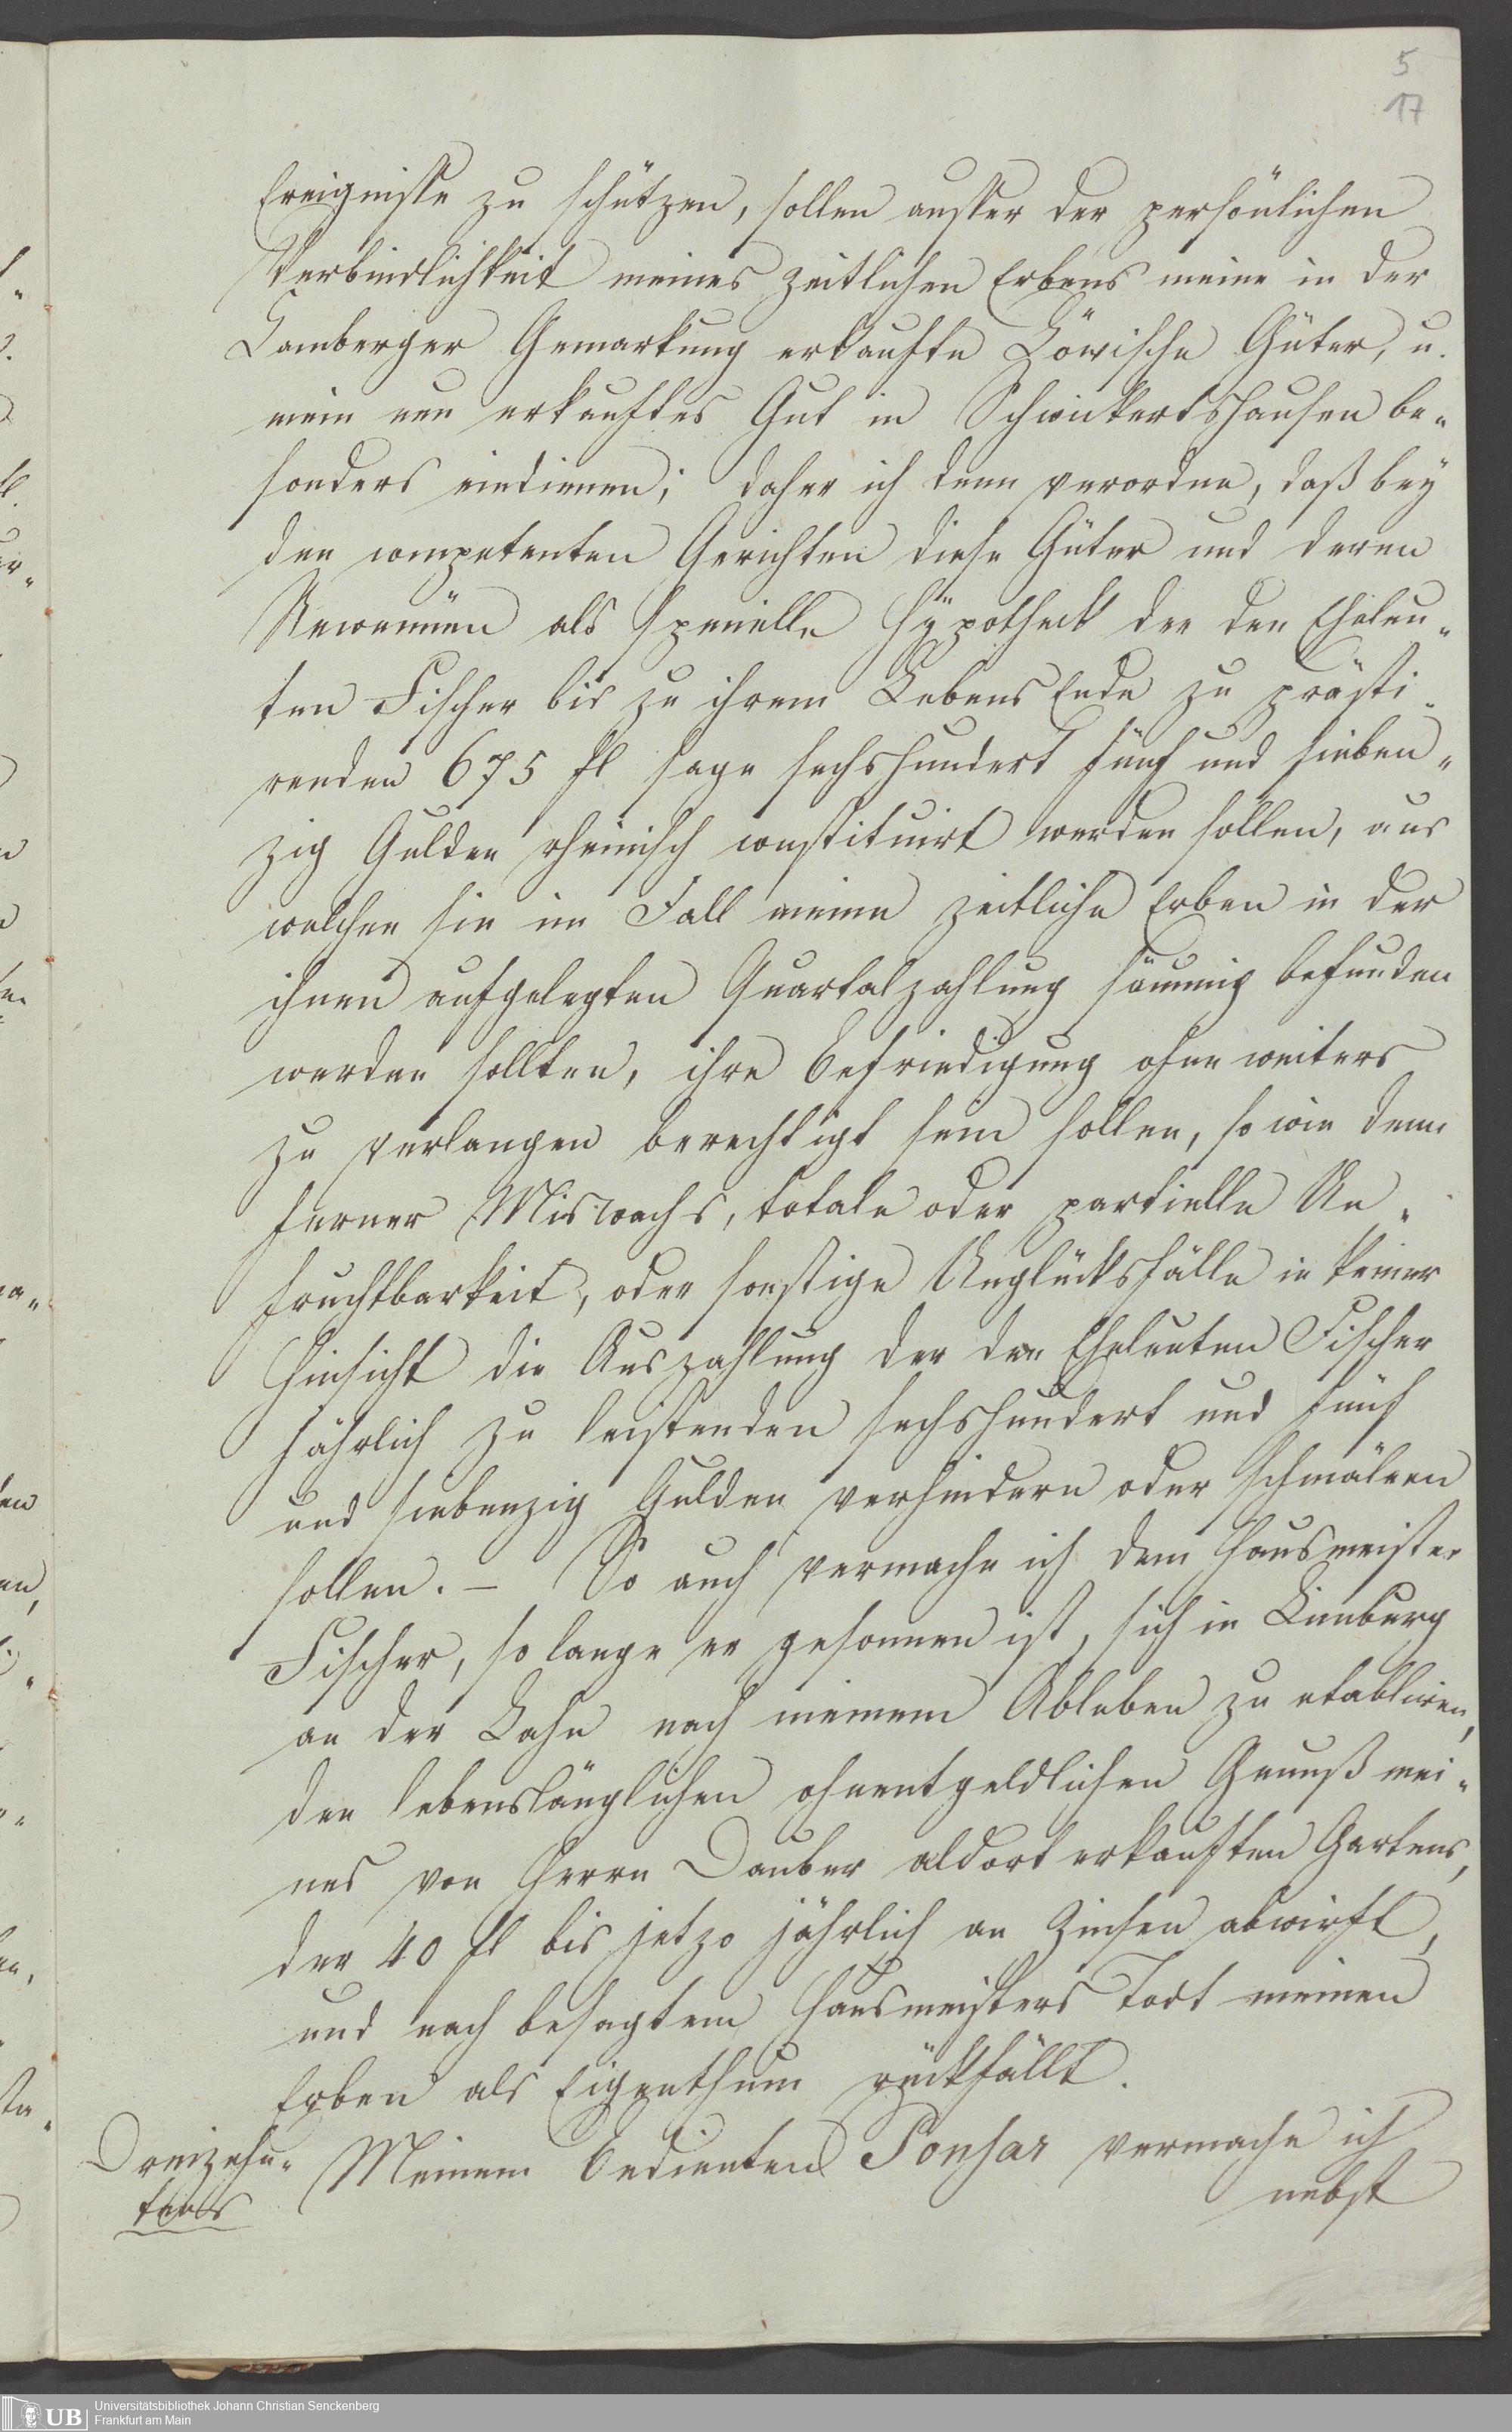 5
17
Ereignisse zu schützen, sollen ausser der persönlichen
Verbindlichkeit meines zeitlichen Erbens meine in der
Camberger Gemarkung erkaufte Löwische Güter, u.
mein neu erkauftes Gut in Schwickertshausen be-
sonders eindienen; daher ich denn verordne, daß bey
den competenten Gerichten diese Güter und deren
Revenüen als spezielle Hÿpotheck der den Eheleu-
ten Fischer bis zu ihrem Lebens Ende zu prästi-
renden 675 fl sage sechshundert fünf und sieben-
zig Gulden rheinisch constituirt werden sollen, aus
welchen sie im Fall meine zeitliche Erben in der
ihnen aufgelegten Quartalzahlung säumig befunden
werden sollten, ihre Befriedigung ohne weiters
zu verlangen berechtigt sein sollen, so wie denn
ferner Miswachs, totale oder partielle Un-
fruchtbarkeit, oder sonstige Unglücksfälle in keiner
Hinsicht die Auszahlung der den Eheleuten Fischer
jährlich zu leistenden sechshundert und fünf
und siebenzig Gulden verhindern oder schmälern
sollen. – So auch vermache ich dem Hausmeister
Fischer, so lange er gesonnen ist, sich in Limburg
an der Lahn nach meinem Ableben zu etabliren,
den lebenslänglichen ohnentgeldlichen Genuß mei-
nes von Herrn Dauber aldort erkauften Gartens,
der 40 fl bis jetzo jährlich an Zinsen abwirft,
und nach besagtem Hausmeisters Todt meinen
Erben als Eigenthum rückfällt.
Dreizehn-
tens
Meinem Bedienten Ponsar vermache ich
nebst
UB Universitätsbibliothek Johann Christian Senckenberg
Frankfurt am Main